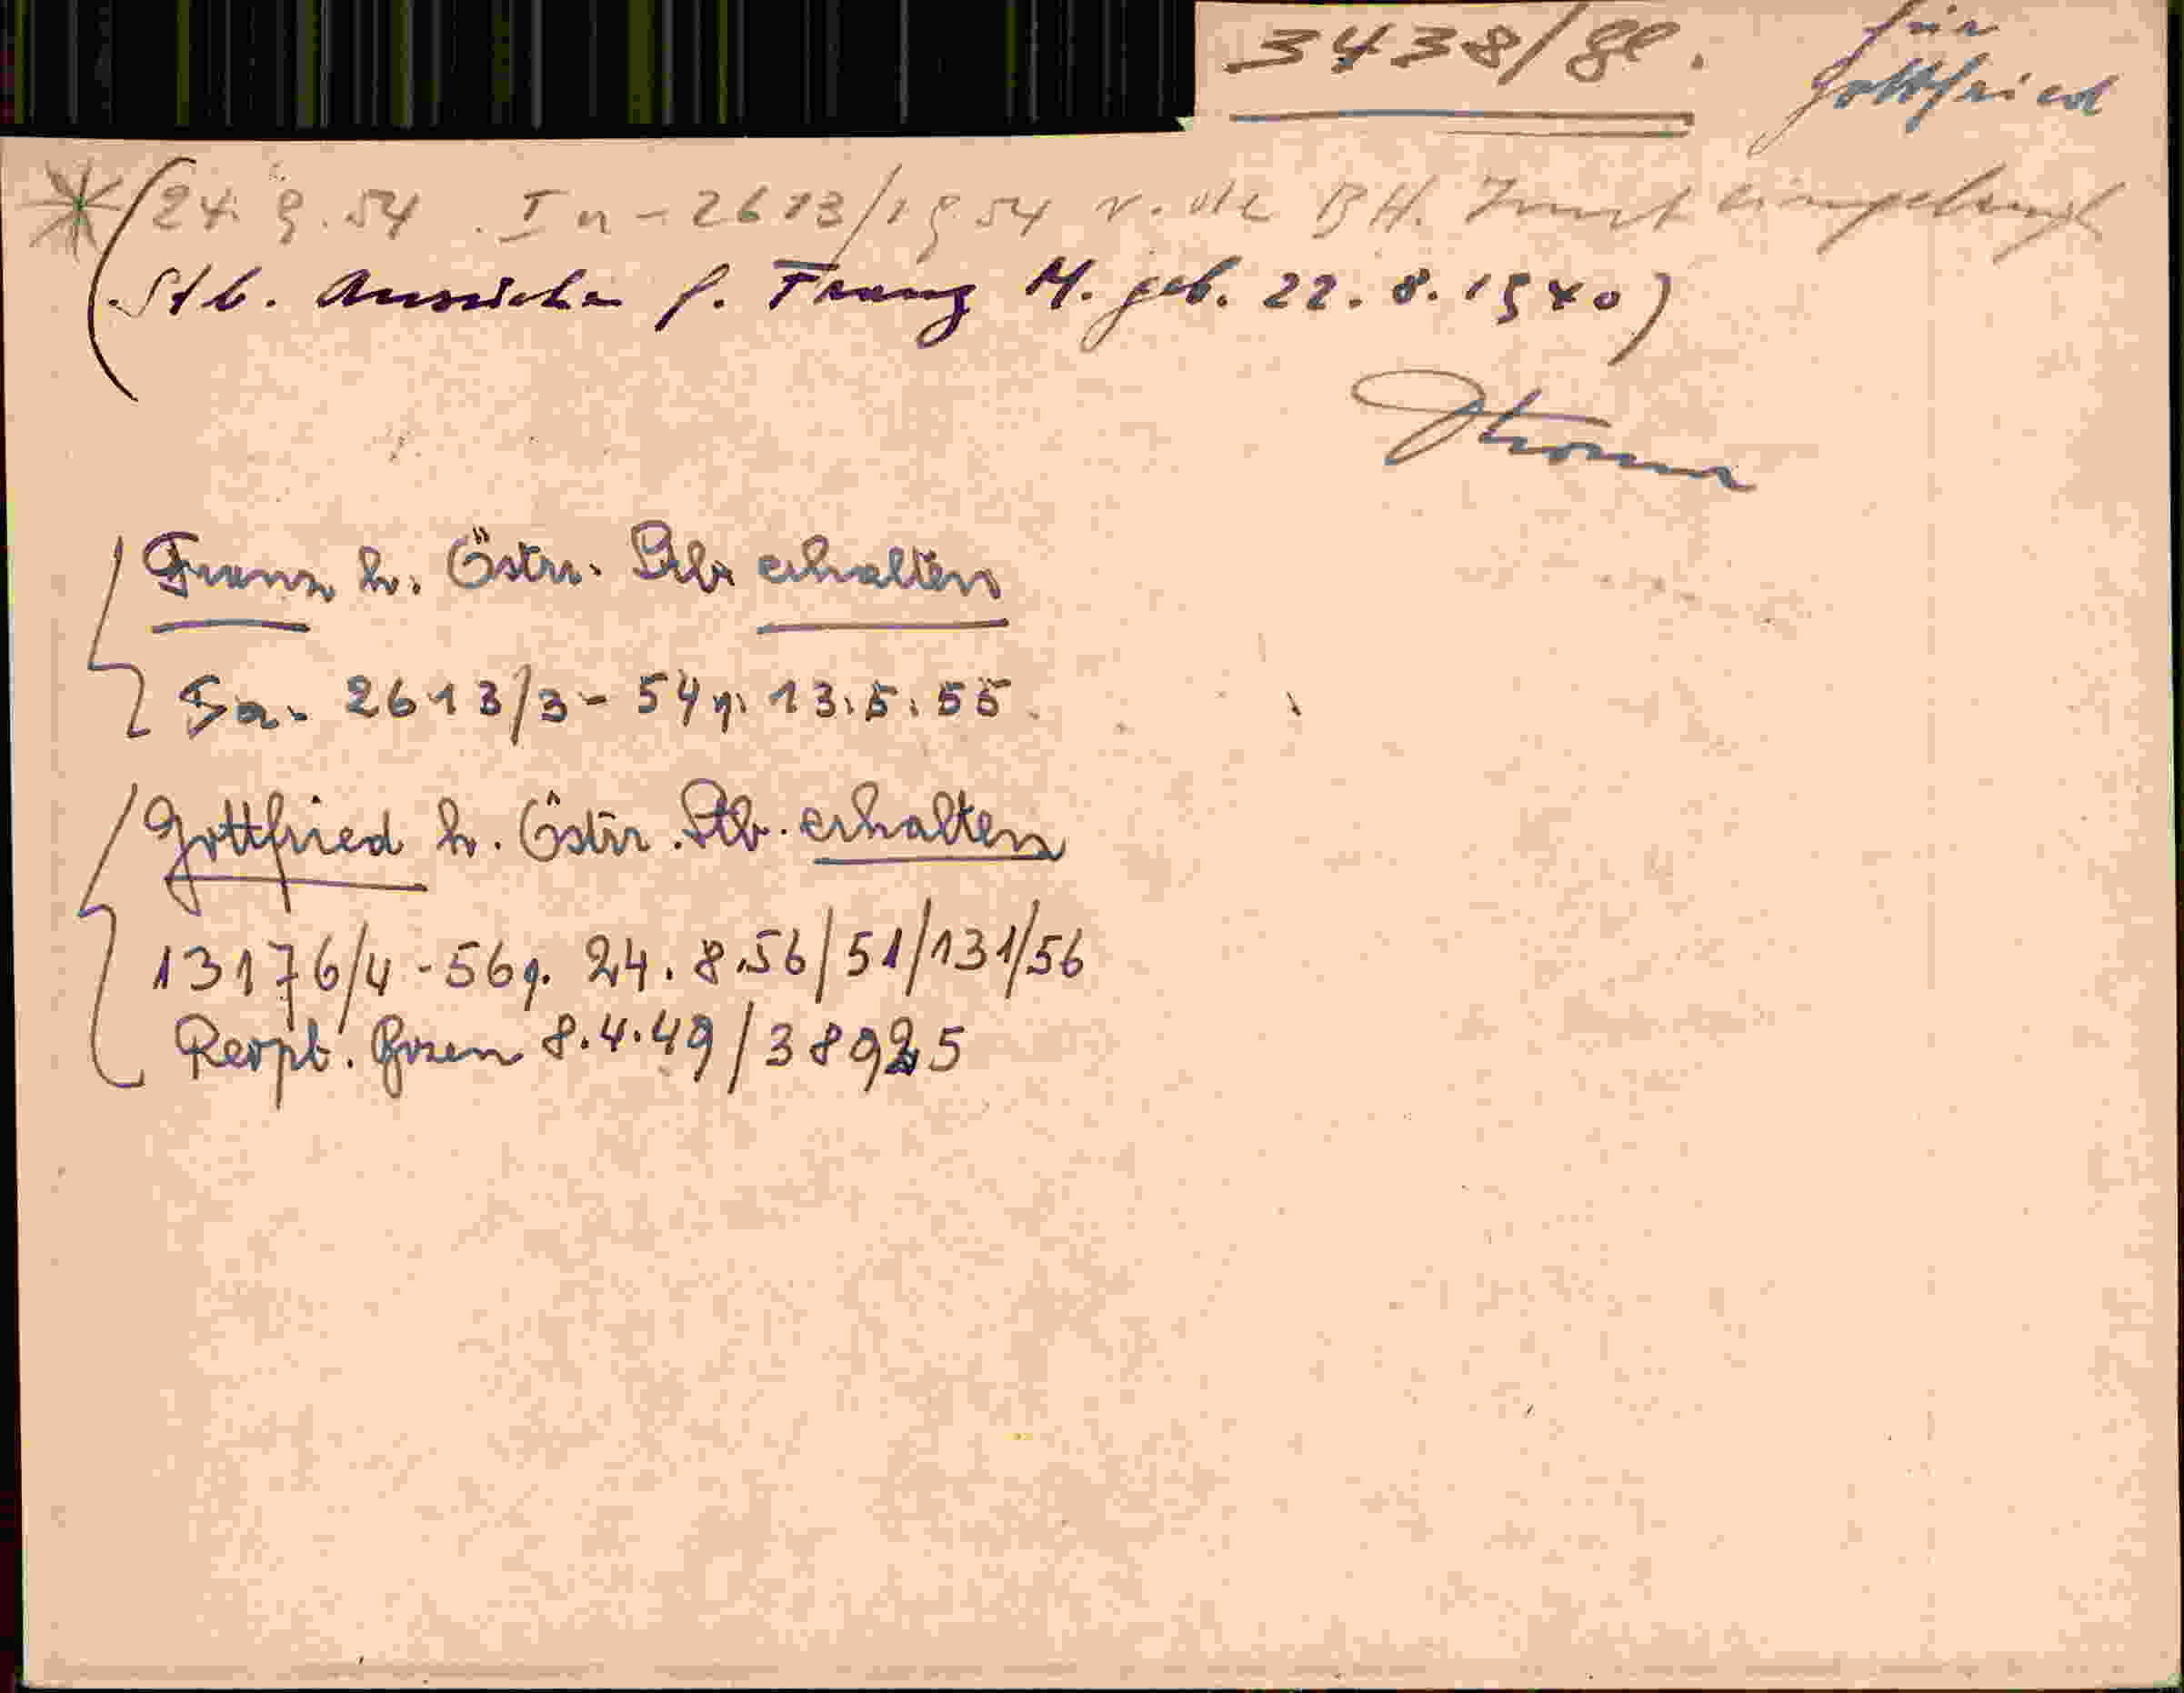 3438/
für
Gottfried
(24. 9. 54. Ia - 2613/1954 v. der BH. Imst eingelangt
Stb. Ansuchen f. Franz M. geb. 22. 8. 1940)
Franz h. Östr. Stb. erhalten
Ia - 2613/3 - 54 v. 13.5.55.
Gottfried h. Östr. Stb. erhalten
13176/4 - 56 v. 24. 8.56/51/131/56
Bozen 8.4.49/38925